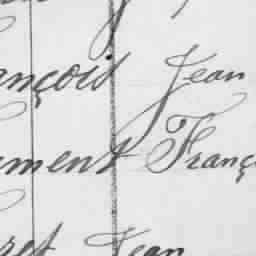 ançois Jean
ment Franç
ret Jean